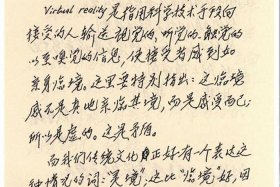 Virtual reality 是指用科学技术手段向
接受的人输送视觉的、听觉的、触觉的
以至嗅觉的信息，使接受者感到如
亲身临境。这里要特别指出：这临境
感不是真地亲临其境，而是感受而已；
所以是虚的。这是矛盾。
而我们传统文化正好有一个表达这
种情况的词：“灵境”；这比“临境”好，因